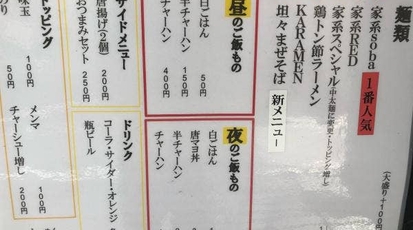 麺類
家系soba 1番人気
家系RED
家系スペシャル(中太麺に変更・トッピング増し)
鶏トン節ラーメン
KARAMEN
坦々まぜそば 新メニュー
(大盛り+100円)
昼のご飯もの
白ごはん 50円
半チャーハン 150円
チャーハン
夜のご飯もの
白ごはん
唐マヨ丼
半チャーハン
チャーハン
サイドメニュー
唐揚げ(2個) 200円
おつまみセット 250円
ドリンク
コーラ・サイダー・オレンジ
瓶ビール
トッピング
味玉 100円
のり 50円
メンマ 100円
チャーシュー増し 200円